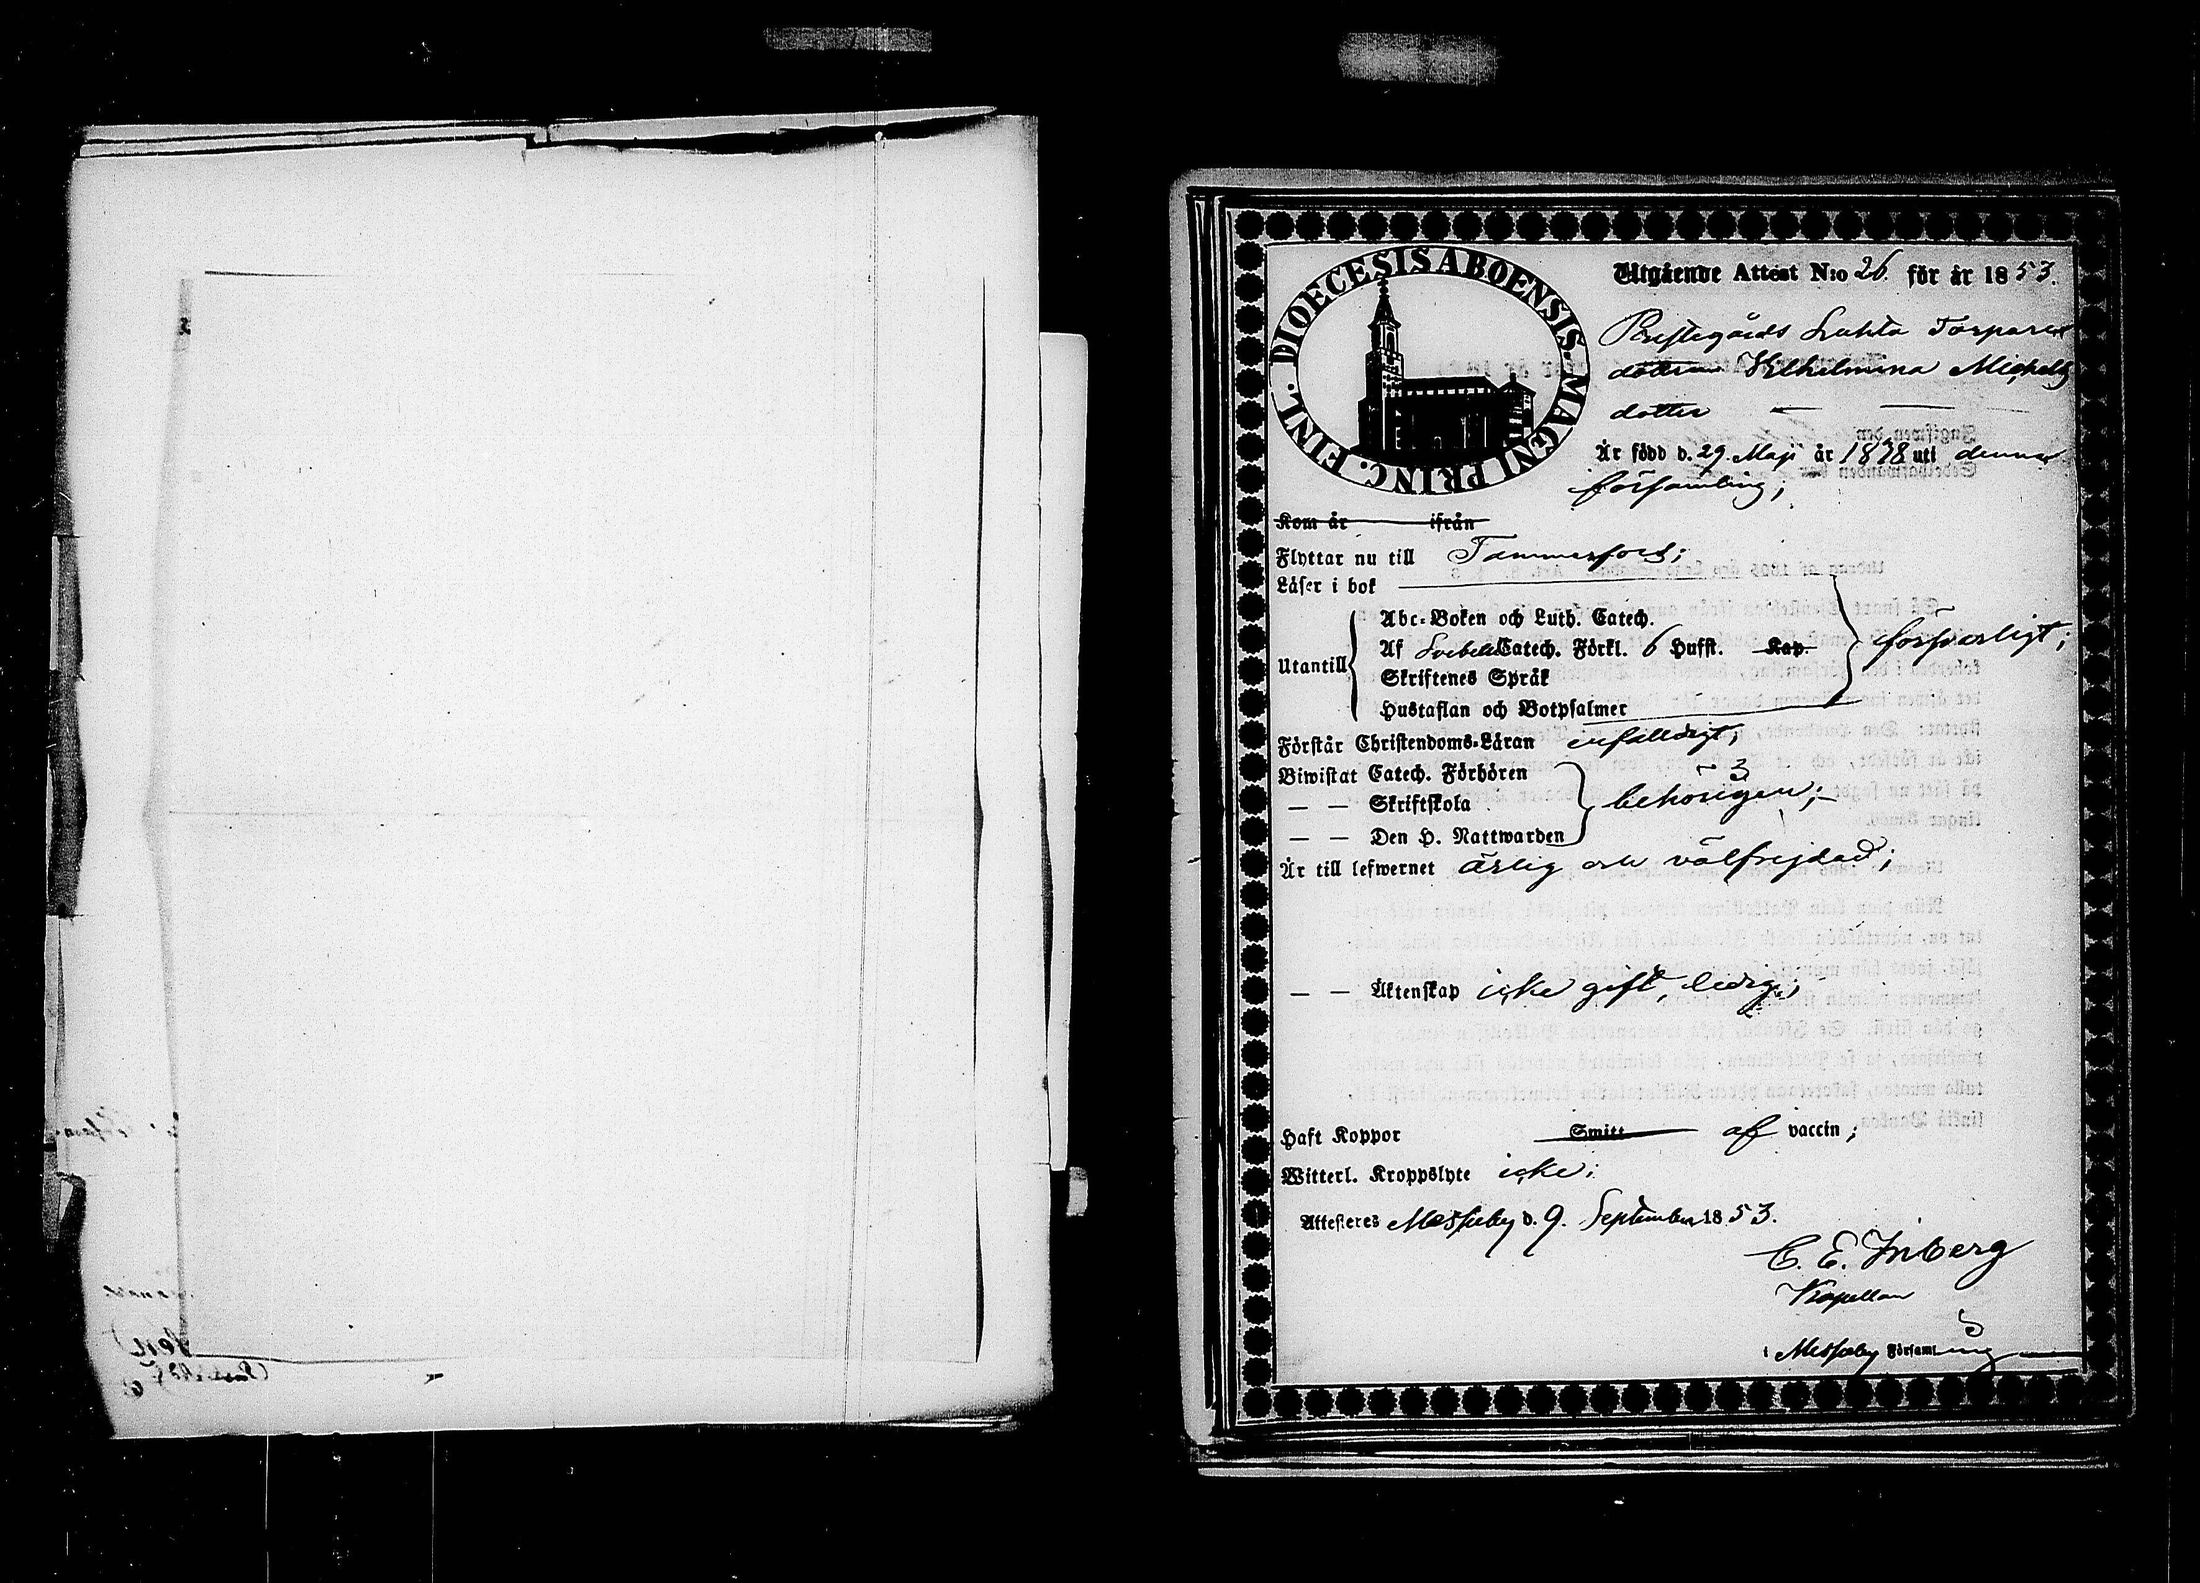 DIOECESIS ABOENSIS. MAGNI PRINC. FINL.
Utgående Attest N:o 26. för år 1853.
Prestegårds Lahta Torpare
dottren Vilhelmina Michels
dotter
Är född d. 29. Maji år 1828 uti denna
församling;
Kom år ifrån
Flyttar nu till Tammerfors;
Läser i bok
Utantill
Abc-Boken och Luth. Catech.
Af Svebelii Catech. Förkl. 6 Hufst. Kap
Skriftenes Språk
Hustaflan och Botpsalmer
försvarligt;
Förstår Christendoms-Läran enfalldigt;
Biwistat Catech. Förhören
— — Skriftskola
— — Den H. Nattwarden
behörigen;
Är till lefwernet ärlig och välfrejdad;
— — Äktenskap icke gift, ledig;
Haft Koppor Smitt af vaccin;
Witterl. Kroppslyte icke;
Attesteres Messuby d. 9. September 1853.
C. E. Inberg
Kapellan
i Messuby Församling